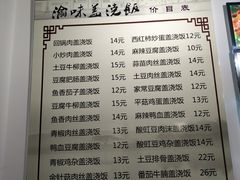 渝味盖浇饭 价目表
回锅肉盖浇饭 14元
小炒肉盖浇饭 14元
土豆牛柳盖浇饭 15元
豆腐肥肠盖浇饭 15元
鱼香茄子盖浇饭 12元
豆腐牛柳盖浇饭 15元
鱼香肉丝盖浇饭 14元
青椒肉丝盖浇饭 14元
鸭血豆腐盖浇饭 12元
青椒鸡杂盖浇饭 15元
金针菇肉丝盖浇饭 14元
西红柿炒蛋盖浇饭 12元
麻辣豆腐盖浇饭 10元
蒜苗肉丝盖浇饭 14元
土豆肉丝盖浇饭 14元
家常豆腐盖浇饭 12元
平菇鸡蛋盖浇饭 13元
麻辣鸭血盖浇饭 12元
酸豇豆肉沫盖浇饭 15元
酸豇豆鸡杂盖浇饭 15元
土豆排骨盖浇饭 22元
番茄牛腩盖浇饭 26元